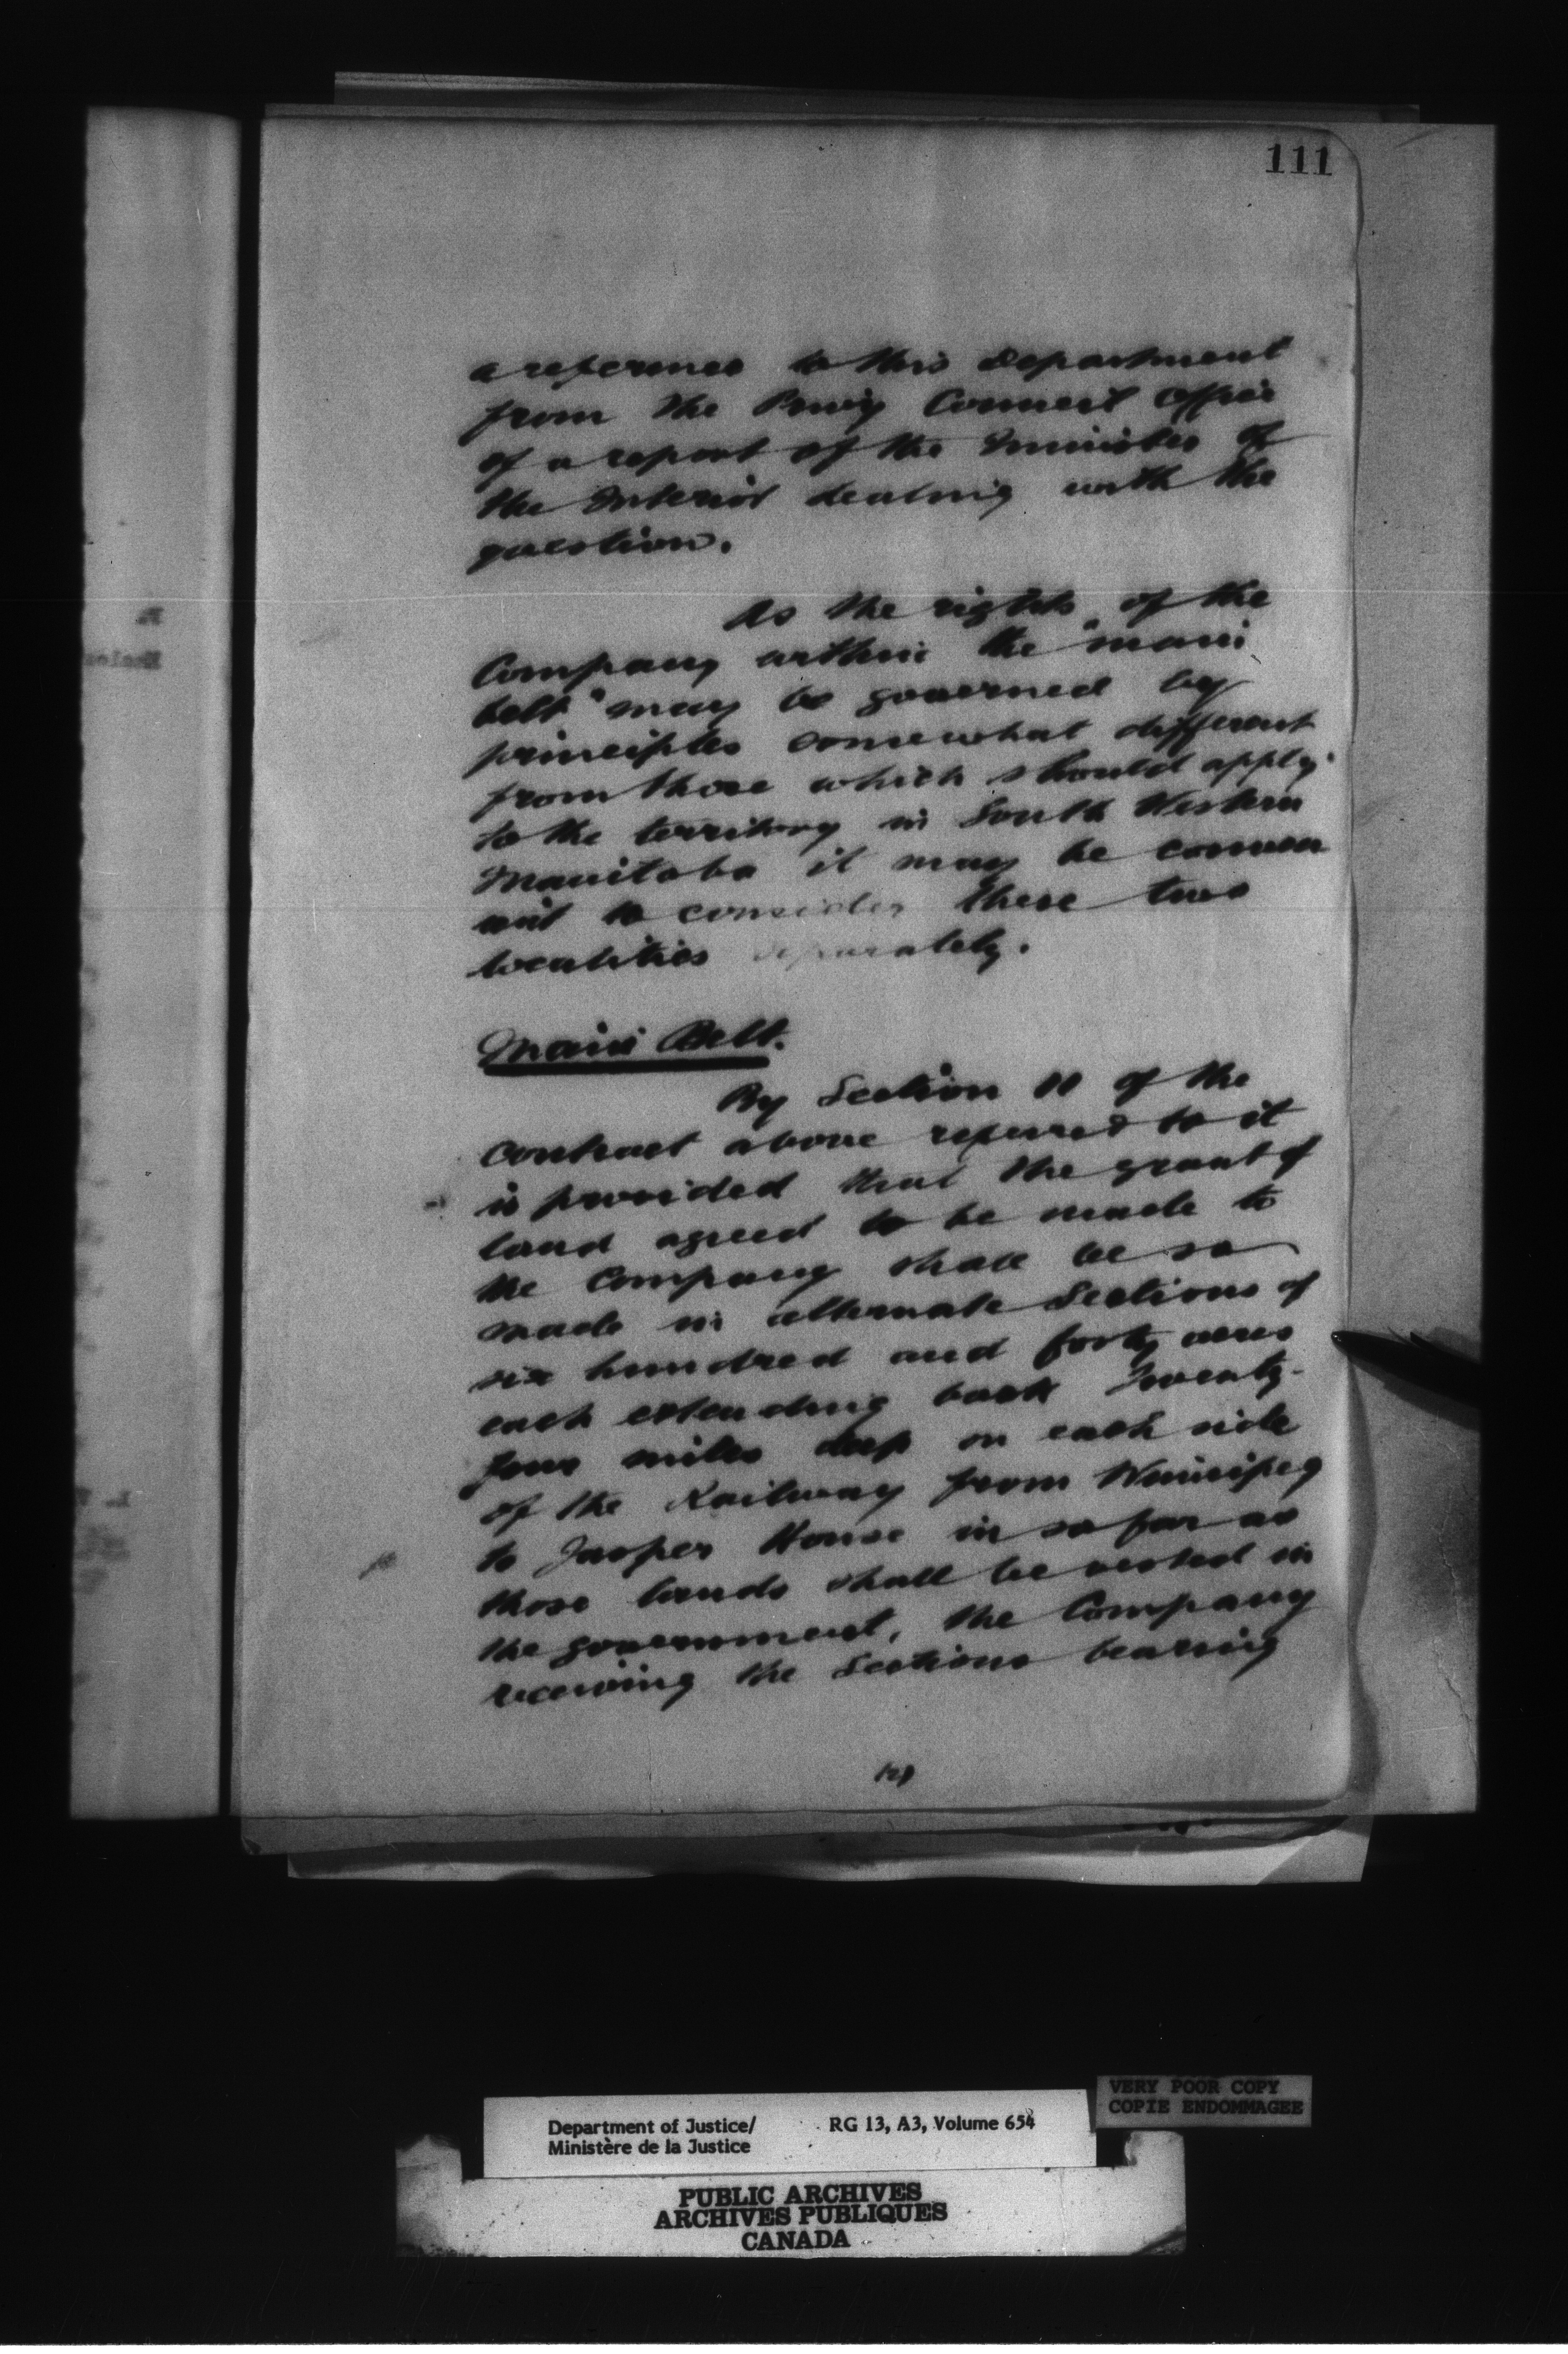 111
a reference to this Department
from the Privy Council Office
of a report of the Minister of
the Interior dealing with the
question.
As the rights of the
Company within the "main
belt" may be governed by
principles somewhat different
from those which should apply
to the territory in South Western
Manitoba it may be conven-
ient to consider these two
localities separately.
Main Belt.
By Section 11 of the
contract above referred to it
is provided that the grant of
land agreed to be made to
the Company shall be so
made in alternate Sections of
six hundred and forty acres
each extending back twenty-
four miles deep on each side
of the Railway from Winnipeg
to Jasper House in so far as
those lands shall be vested in
the government, the Company
receiving the Sections bearing
VERY POOR COPY
COPIE ENDOMMAGEE
Department of Justice/ RG 13, A3, Volume 654
Ministère de la Justice
PUBLIC ARCHIVES
ARCHIVES PUBLIQUES
CANADA